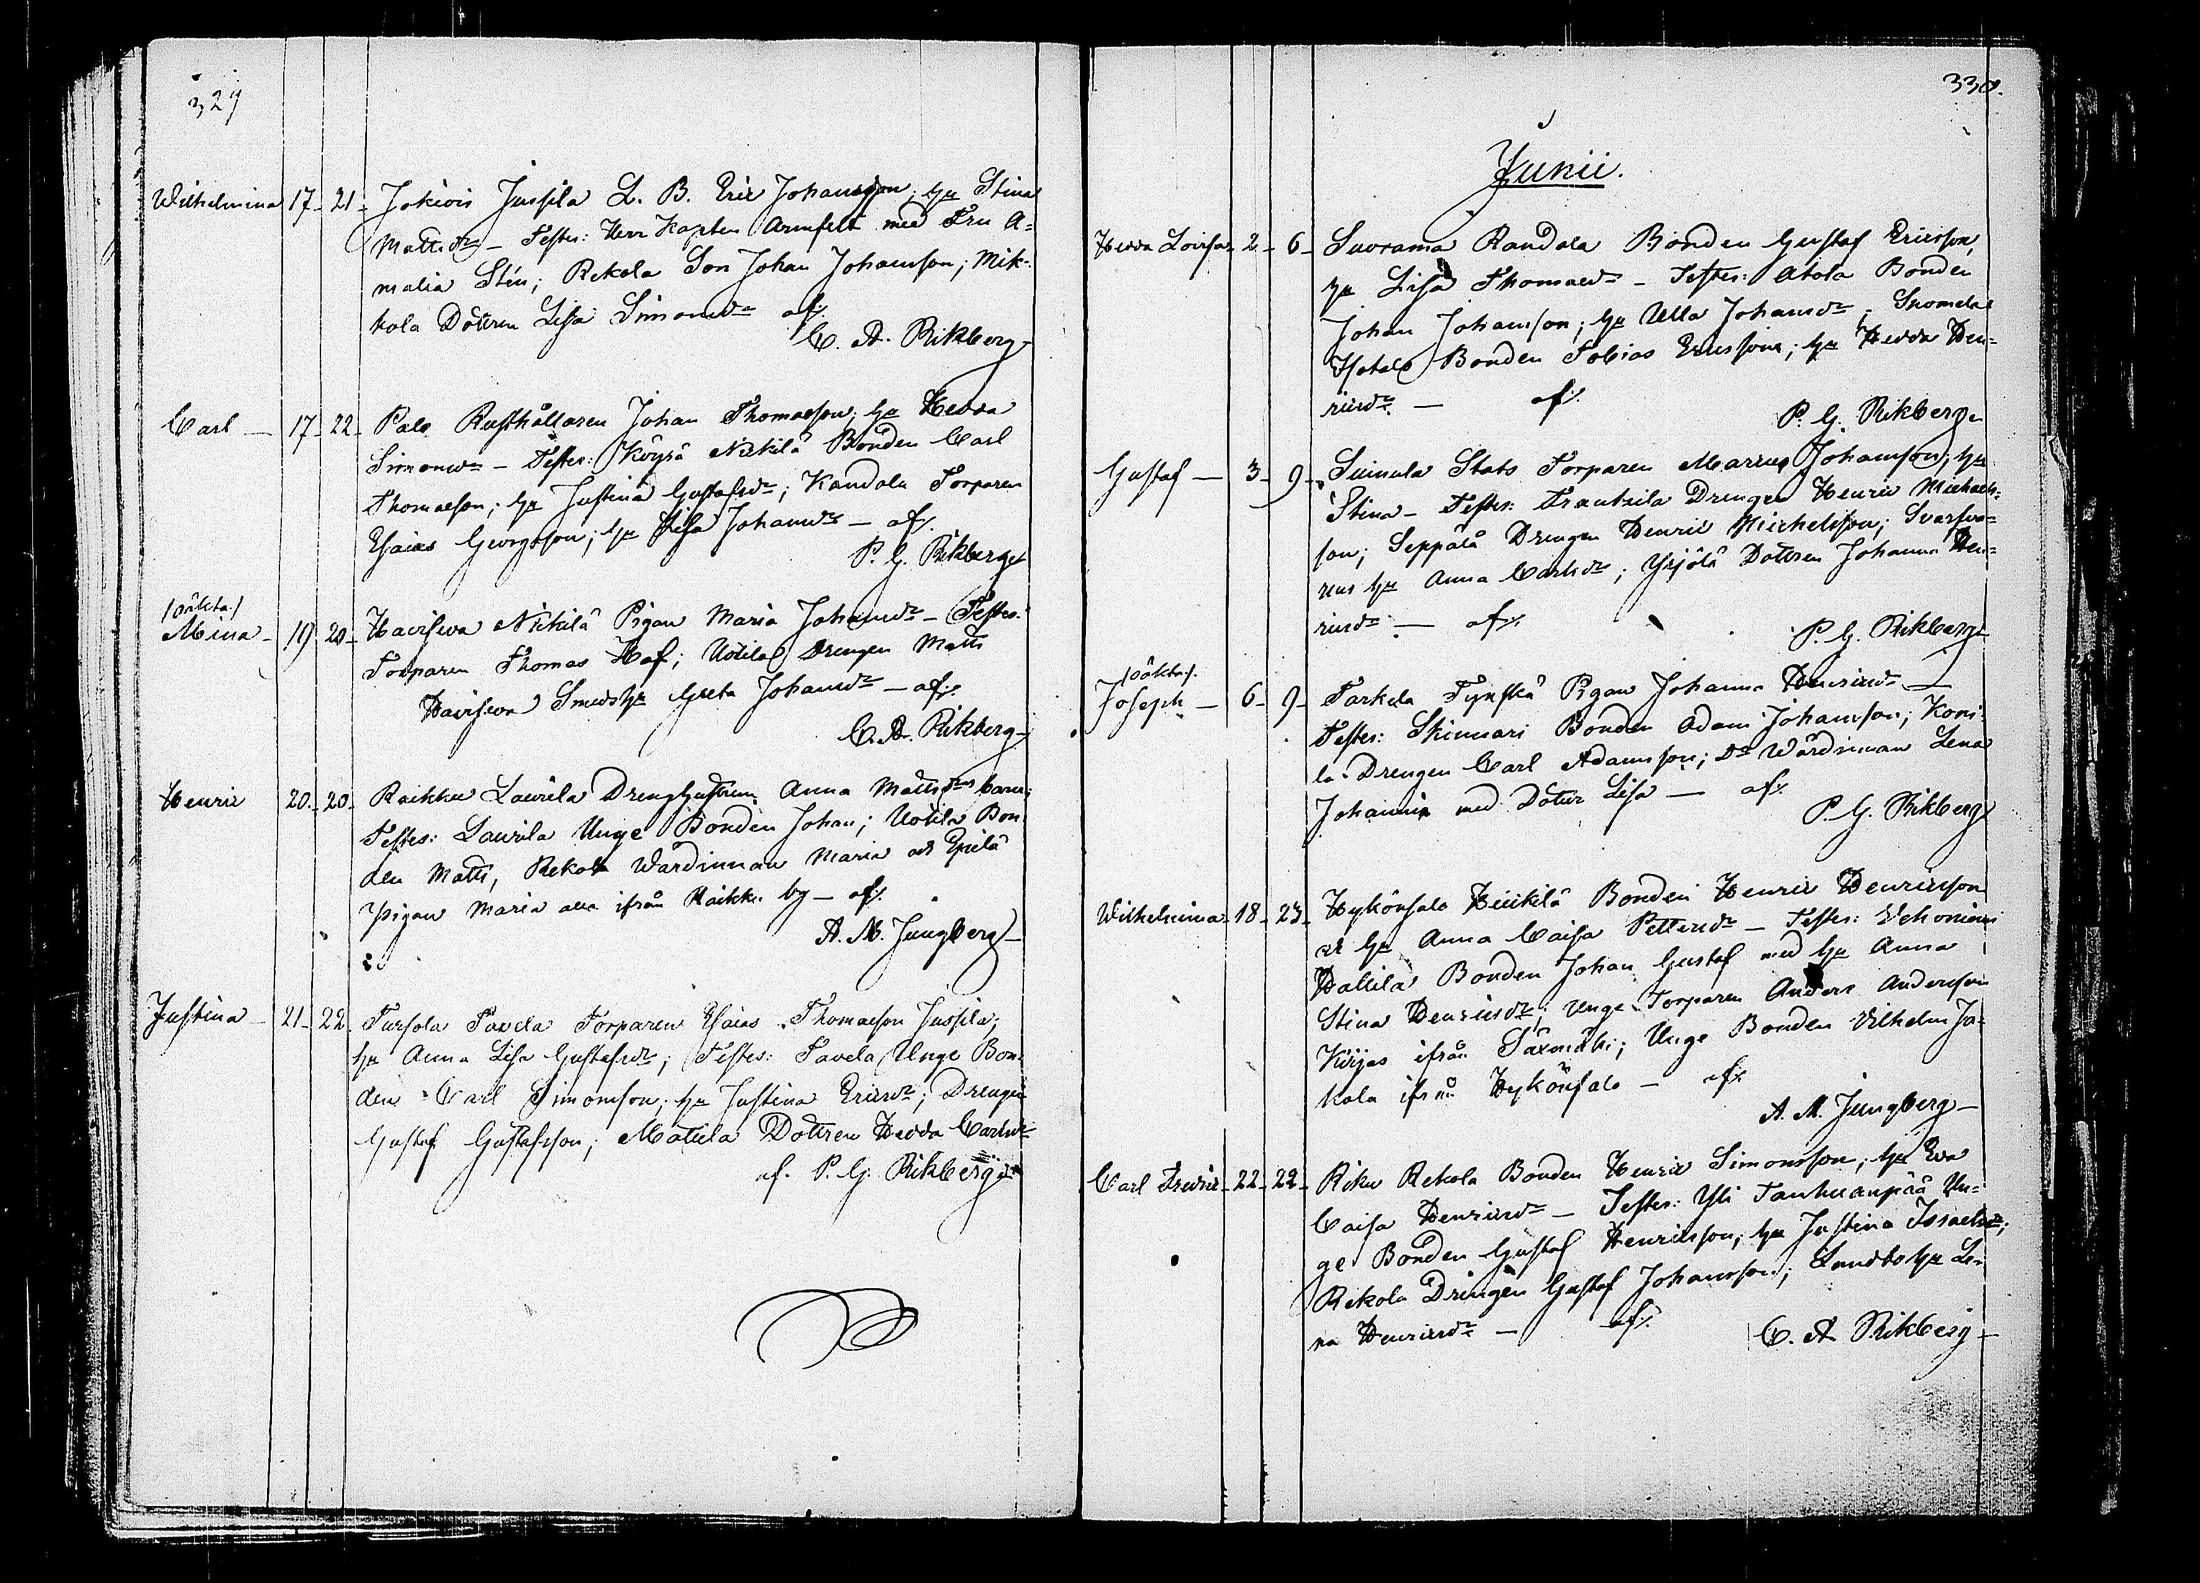 329
Wilhelmina 17 - 21 - Jokiois Jussila L. B. Eric Johansson; hu Stina
Mattsdr - Testes: Herr Kapten Armfelt med Fru A=
malia Stén; Rekola Son Johan Johansson; Mik-
kola Dottren Lisa Simonsdr af
C. A. Rikberg
Carl - 17 - 22 - Palo Rusthållaren Johan Thomasson; hu Hedda
Simonsdr - Testes: Köyrä Nikkilä Bonden Carl
Thomasson; hu Justina Gustafsdr; Kandola Torparen
Esaias Georgsson; hu Lisa Johansdr - af
P. G. Rikberg
/oäkta/
Mina - 19 - 20 - Haviseva Nikkilä Pigan Maria Johansdr - Testes:
Torparen Thomas Haf; Uotila Drengen Matts
Haviseva Smeds hu Greta Johansdr - af
C. A. Rikberg
Henric 20 - 20 - Raikku Laurila Dreng hustrun Anna Mattsdrs barn;
Testes: Laurila Unge Bonden Johan; Uotila Bon
den Matts, Rekola Wärdinnan Maria och Epilä
pigan Maria alla ifrån Raikku by - af
A. M. Jungberg
Justina - 21 - 22 - Tursola Pavela Torparen Esaias Thomasson Jussila;
hu Anna Lisa Gustafsdr; Testes: Pavela Unge Bon
den Carl Simonsson; hu Justina Ericsdr; Drengen
Gustaf Gustafsson; Mattila Dottren Hedda Carlsdr
af. P. G. Rikberg
330.
Junii.
Hedda Lovisa - 2 - 6 - Suorama Randala Bonden Gustaf Ericsson,
hu Lisa Thomasdr - Testes: Ahola Bonden
Johan Johansson; hu Ulla Johansdr;
Isotalo Bonden Tobias Ericsson; hu Hedda Hen=
ricsdr - af
P. G. Rikberg
Gustaf - 3 - 9 - Suinula Stats Torparen Marcus Johansson; hu
Stina - Testes: Frantsila Drengen Henric Michaels=
son; Seppälä Drengen Henric Michelsson;
hu Anna Carlsdr; Yrjölä Dottren Johanna Hen=
ricsdr - af
P. G. Rikberg
/oäkta/
Joseph - 6 - 9 - Tarkela Pigan Johanna Henricsdr -
Testes: Skinnari Bonden Adam Johansson; Koni
la Drengen Carl Adamsson; Do Wärdinnan Lena
Johanna med Dotter Lisa - af
P. G. Rikberg
Wilhelmina - 18 - 23 - Hykönsalo Heikkilä Bonden Henric Henricsson
och hu Anna Caisa Pettersdr - Testes: Vehoniemi
Hallila Bonden Johan Gustaf med hu Anna
Stina Henricsdr; Unge Torparen Anders Andersson
ifrån Saxmäki; Unge Bonden Vilhelm Ja=
kola ifrån Hykönsalo - af
A. M. Jungberg
Carl Fredric - 22 - 22 - Riku Rekola Bonden Henric Simonsson; hu Eva
Caisa Henricsdr - Testes: Yli Tanhuanpää Un=
ge Bonden Gustaf Henricsson; hu Justina Issacsdr;
Rekola Drengen Gustaf Johansson; Lundbo hu Le-
na Henricsdr - af
C. A. Rikberg